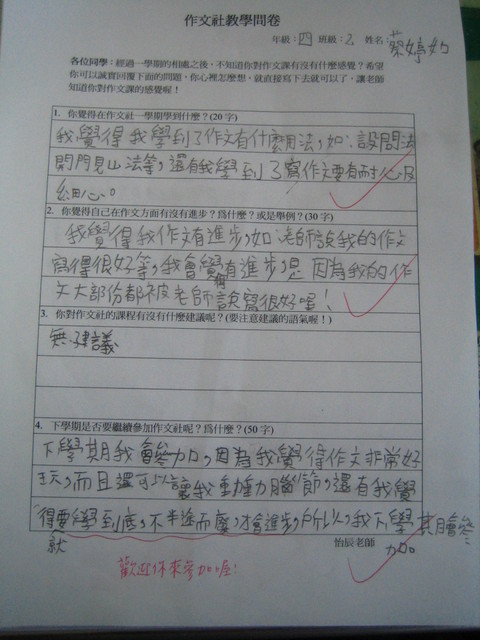 作文社教學問卷
年級：四 班級：2 姓名：蔡婷如
各位同學：經過一學期的相處之後，不知道你對作文課有沒有什麼感覺？希望
你可以誠實回覆下面的問題，你心裡怎麼想，就直接寫下去就可以了，讓老師
知道你對作文課的感覺喔！
1. 你覺得在作文社一學期學到什麼？(20 字)
我覺得我學到了作文有什麼用法，如：設問法
開門見山法等，還有我學到了寫作文要有耐心及
細心。
2. 你覺得自己在作文方面有沒有進步？為什麼？或是舉例？(30 字)
我覺得我作文有進步，如：老師說我的作文
寫得很好等，我會覺有進步是因為我的作
文大部份都被老師說寫很好喔！
3. 你對作文社的課程有沒有什麼建議呢？(要注意建議的語氣喔！)
無建議
4. 下學期是否要繼續參加作文社呢？為什麼？(50 字)
下學期我會參加，因為我覺得作文非常好
玩，而且還可以讓我動動腦節，還有我覺
得要學就學到底，不半途而廢，才會進步，所以，我下學期會參
加。
怡辰老師
歡迎你來參加喔！